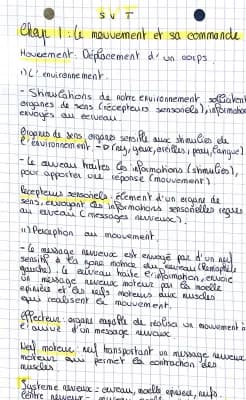 SVT
Chap 1 : Le mouvement et sa commande
Mouvement : Déplacement d'un corps.
I) L'environnement
- Stimulations de notre environnement sollicitent
organes de sens (récepteurs sensoriels), informations
envoyés au cerveau.
Organes de sens, organes sensible aux stimulies de
l'environnement -> (nez, yeux, oreilles, peau, langue)
- Le cerveau traites les informations (stimulies),
pour apporter une réponse (mouvement)
Récepteurs sensoriels, élement d'un organe de
sens, envoyant les informations sensorielles reçues
au cerveau (messages nerveux).
II) Perception au mouvement
- Le message nerveux est envoyé par d'un nerf
sensitif à la zone motrice du cerveau (hémisphère
gauche). Le cerveau traite l'information, envoie
un message nerveux moteur par la moelle
épinière et les nerfs moteurs aux muscles
qui réalisent le mouvement.
Effecteur : organe capable de réalisa un mouvement à
l'arrivé d'un message nerveux
Nerf moteur, nerf transportant un message nerveux
moteur qui permet la contraction des
muscles
Système nerveux : cerveau, moelle épinière, nerfs.
Centre nerveux